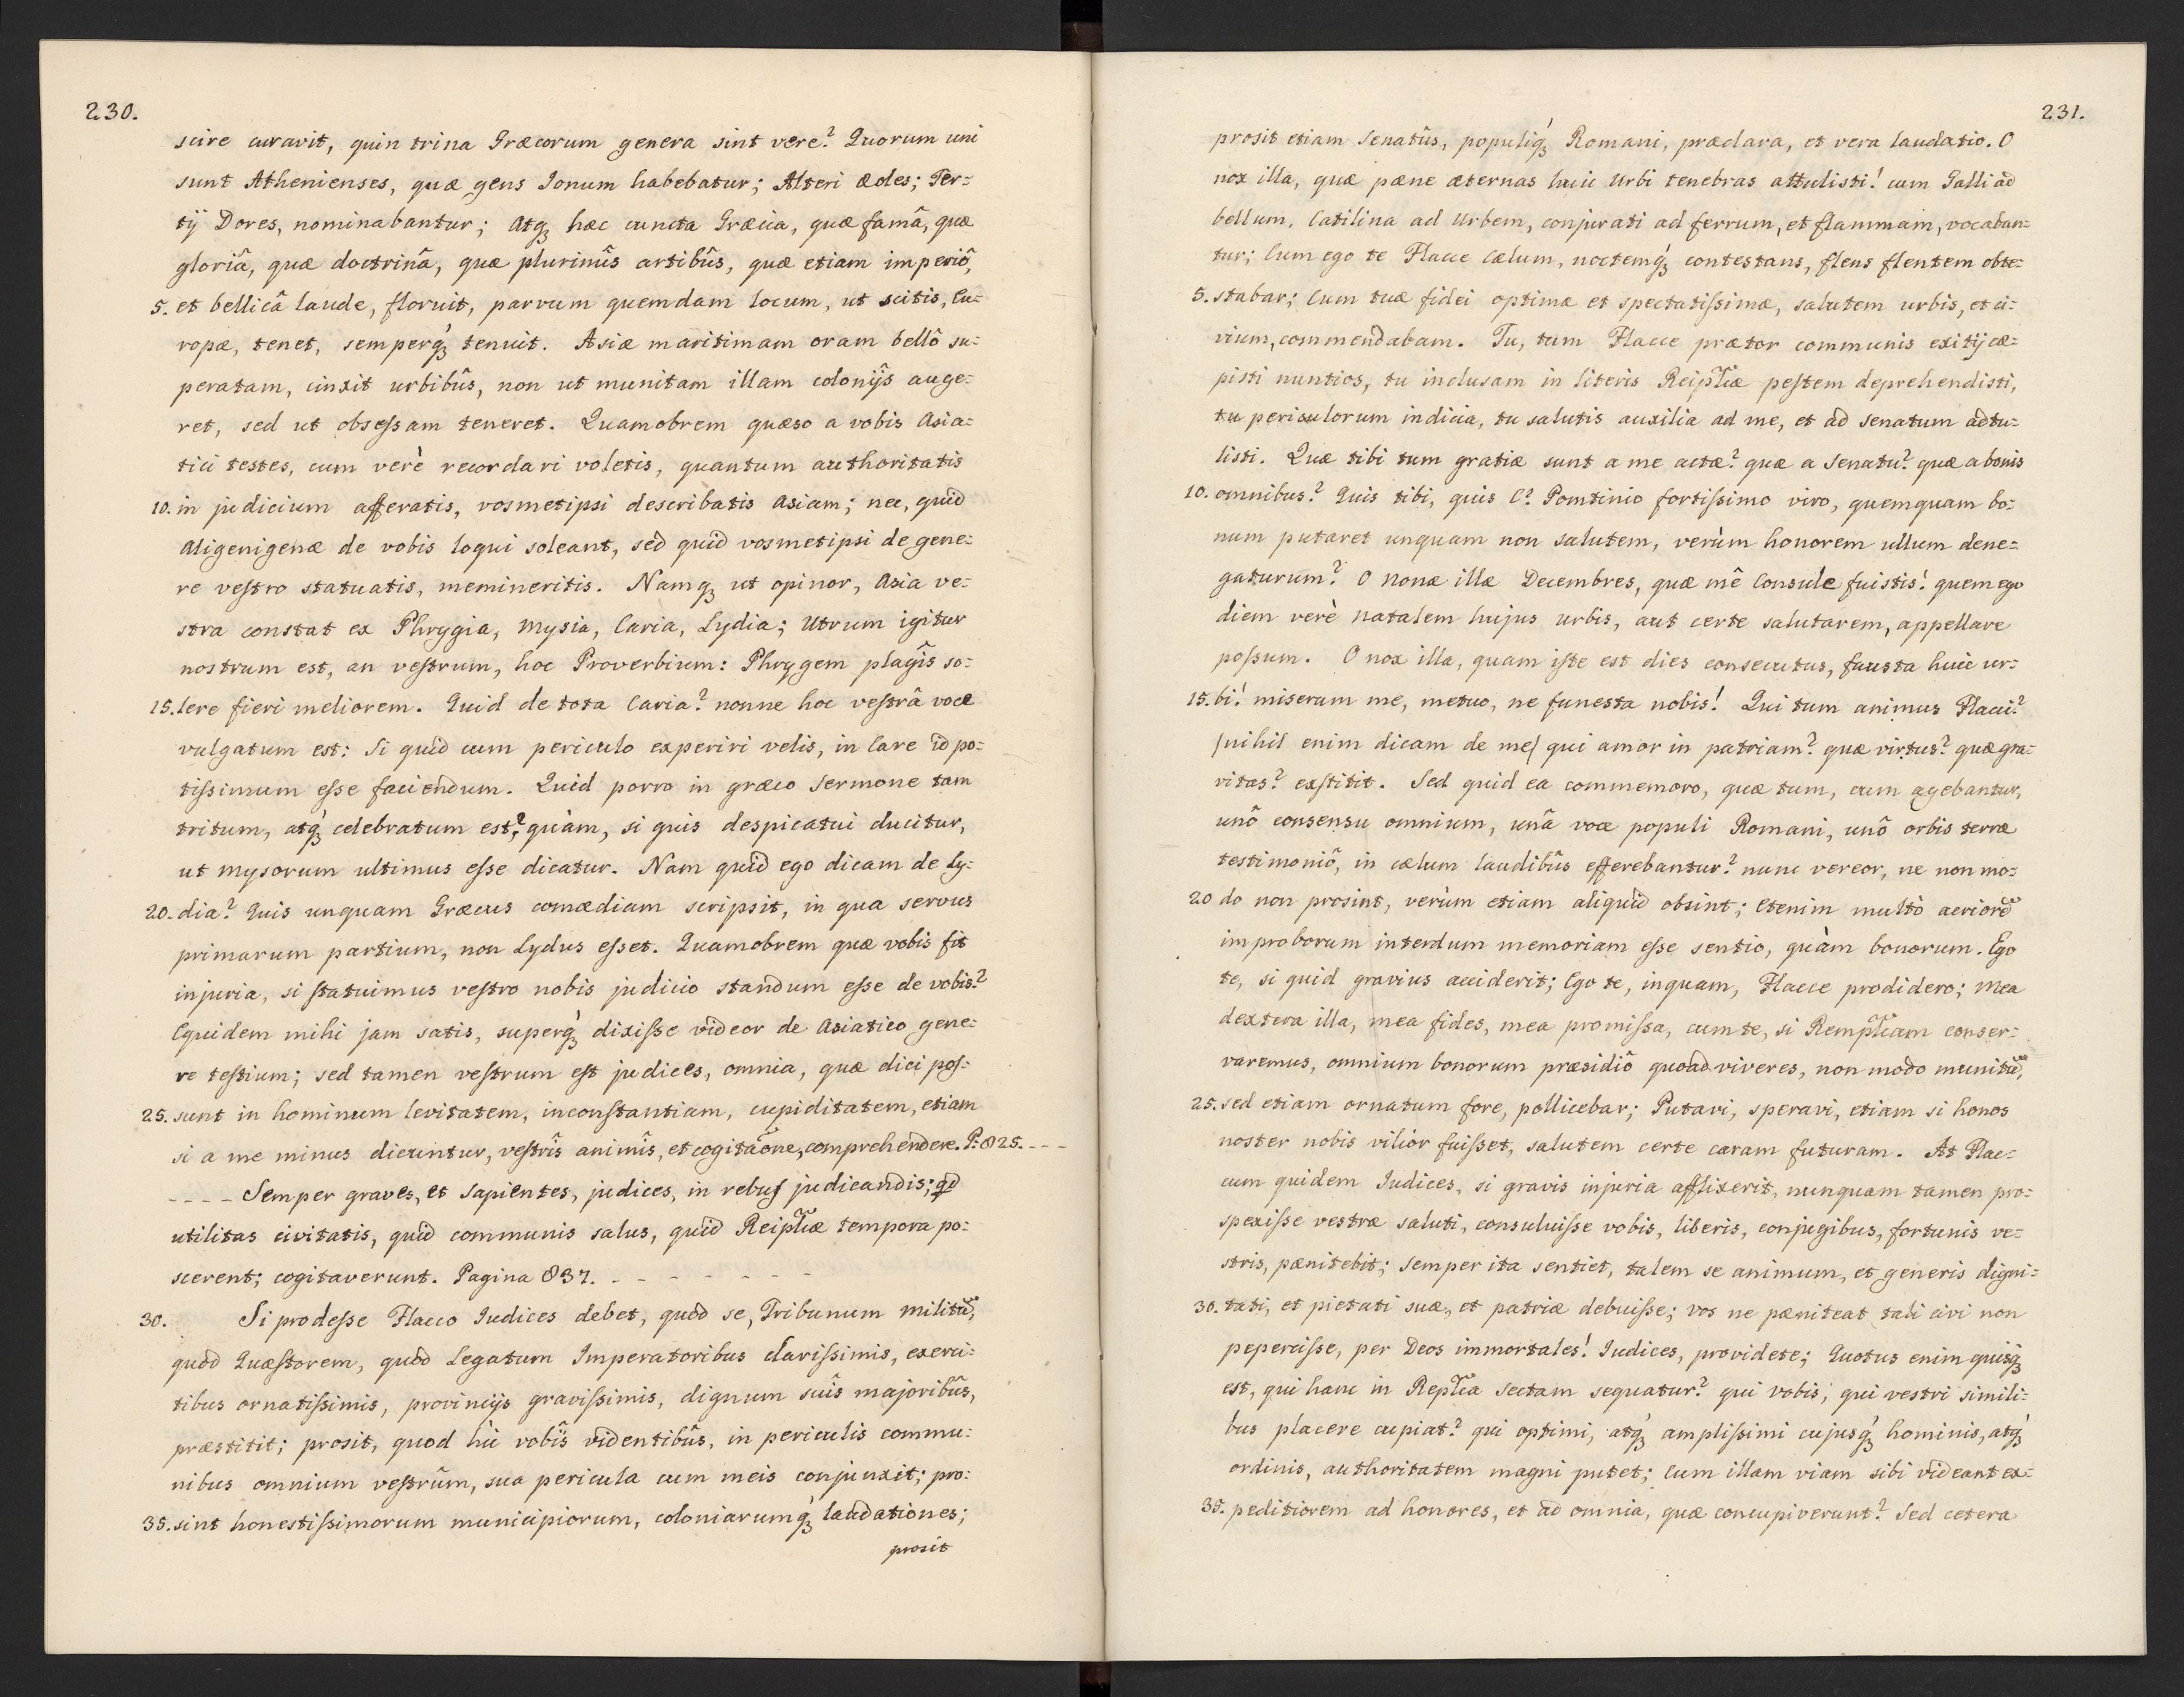 230.
scire curavit, quin trina Græcorum genera sint vere? Quorum uni
sunt Athenienses, quæ gens Ionum habebatur; Alteri Ædes; Ter=
tÿ Dores, nominabantur; Atq₃ hæc cuncta Græcia, quæ famâ, quæ
gloriâ, quæ doctrinâ, quæ plurimîs artibûs, quæ etiam imperiô,
5. et bellicâ laude, floruit, parvum quemdam locum, ut scitis, Eu=
ropæ, tenet, semperq́₃ tenuit. Asiæ maritimam oram bellô su=
peratam, cinxit urbibûs, non ut munitam illam colonÿs auge=
ret, sed ut obseſsam teneret. Quamobrem quæso a vobis Asia=
tici testes, cum verè recordari voletis, quantum authoritatis
10. in judicium afferatis, vosmetipsi describatis Asiam; nec, quid
Aligenigenæ de vobis loqui soleant, sed quid vosmetipsi de gene=
re veſtro statuatis, memineritis. Namq₃ ut opinor, Asia ve=
stra constat ex Phrygia, Mysia, Caria, Lydia; Utrum igitur
nostrum est, an veſtrum, hoc Proverbium: Phrygem plagîs so=
15. lere fieri meliorem. Quid de tota Caria? nonne hoc veſtrâ voce
vulgatum est: Si quid cum periculo experiri velis, in Care id po=
tiſsimum eſse faciendum. Quid porro in græco Sermone tam
tritum, atq́₃ celebratum est? quàm, si quis despicatui ducitur,
ut Mysorum ultimus eſse dicatur. Nam quid ego dicam de Ly=
20. dia? Quis unquam Græcus comædiam scripsit, in qua servus
primarum partium, non Lydus eſset. Quamobrem quæ vobis fit
injuria, si ſtatuimus veſtro nobis judicio standum eſse de vobis?
Equidem mihi jam satis, superq́₃ dixiſse videor de Asiatico gene=
re teſtium; sed tamen veſtrum eſt judices, omnia, quæ dici poſ=
25. sunt in hominum levitatem, inconſtantiam, cupiditatem, etiam
si a me minus dicuntur, veſtrîs animîs, et cogitãone, comprehendere. P: 825. - - -
- - - - Semper graves, et sapientes, judices, in rebuſ judicandis; qd
utilitas civitatis, quid communis salus, quid Reip̃licæ tempora po=
scerent; cogitaverunt. Pagina 837. - - - - - - -
30. Si prodeſse Flacco Iudices debet, quod se, Tribunum militũ,
quod Quæſtorem, quod Legatum Imperatoribus clariſsimis, exerci=
tibus ornatiſsimis, provincÿs graviſsimis, dignum suîs majoribûs,
præstitit; prosit, quod hîc vobîs videntibûs, in periculis commu=
nibus omnium veſtrûm, sua pericula cum meis conjunxit; pro=
35. sint honestiſsimorum municipiorum, coloniarumq́₃ laudationes;
prosit
231.
prosit etiam Senatûs, populiq́₃ Romani, præclara, et vera laudatio. O
nox illa, quæ pæne æternas huic Urbi tenebras attulisti! cum Galli ad
bellum, Catilina ad Urbem, conjurati ad ferrum, et flammam, vocaban=
tur; Cum ego te Flacce Cælum, noctemq́₃ contestans, flens flentem obte=
5. stabar; Cum tuæ fidei optimæ et spectatiſsimæ, salutem urbis, et ci=
vium, commendabam. Tu, tum Flacce prætor communis exitÿ cæ=
pisti nuntios, tu inclusam in literis Reip̃licæ peſtem deprehendisti,
tu periculorum indicia, tu salutis auxilia ad me, et ad Senatum adtu=
listi. Quæ tibi tum gratiæ sunt a me actæ? quæ a Senatu? quæ a bonis
10. omnibus? Quis tibi, quis C? Pomtinio fortiſsimo viro, quemquam bo=
num putaret unquam non salutem, verùm honorem ullum dene=
gaturum? O Nonæ illæ Decembres, quæ mê Consule fuistis! quem ego
diem verè Natalem hujus urbis, aut certe salutarem, appellare
poſsum. O nox illa, quam iſte est dies consecutus, fausta huic ur=
15. bi! miserum me, metuo, ne funesta nobis! Qui tum animus Flacci?
(nihil enim dicam de me) qui amor in patriam? quæ virtus? quæ gra=
vitas? exſtitit. Sed quid ea commemoro, quæ tum, cum agebantur,
unô consensu omnium, unâ voce populi Romani, unô orbis terræ
testimoniô, in cælum laudibûs efferebantur? nunc vereor, ne non mo=
20 do non prosint, verùm etiam aliquid obsint; Etenim multò acriorẽ
improborum interdum memoriam eſse sentio, quàm bonorum. Ego
te, si quid gravius acciderit; Ego te, inquam, Flacce prodidero; Mea
dextera illa, mea fides, mea promiſsa, cum te, si Remp̃licam conser=
varemus, omnium bonorum præsidiô quoad viveres, non modo munitũ,
25. sed etiam ornatum fore, pollicebar; Putavi, speravi, etiam si honos
noster nobis vilior fuiſset, salutem certe caram futuram. At Flac=
cum quidem Iudices, si gravis injuria afflixerit, nunquam tamen pro=
spexiſse vestræ saluti, consuluiſse vobis, liberis, conjugibus, fortunis ve=
stris, pænitebit; semper ita sentiet, talem se animum, et generis digni=
30. tati, et pietati suæ, et patriæ debuiſse; vos ne pæniteat tali civi non
peperciſse, per Deos immortales! Iudices, providete; Quotus enim quisq́₃
est, qui hanc in Rep̃lica sectam sequatur? qui vobis, qui vestri simili=
bus placere cupiat? qui optimi, atq́₃ ampliſsimi cujusq́₃ hominis, atq́₃
ordinis, authoritatem magni putet; Cum illam viam sibi videant ex=
35. peditiorem ad honores, et ad omnia, quæ concupiverunt? Sed cetera